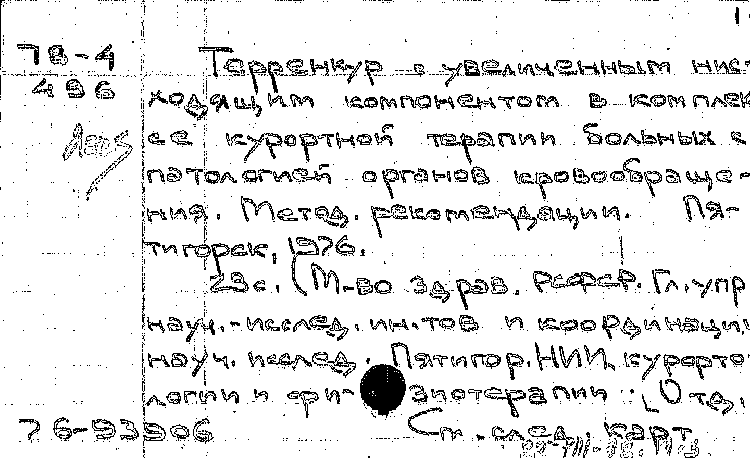 1
78-4 Терренкур с увеличенным нис-
496 ходящим компонентом в комплек-
се курортной терапии больных с
патологией органов кровообраще-
ния. Метод. рекомендации. Пя-
тигорск, 1976.
23с. (М-во здрав. РСФСР. Гл. упр.
науч.-исслед. ин.-тов и координации
науч. исслед. Пятигор. НИИ курорто-
логии и фи- зиотерапии. [Отд.
76-93906 См. след. карт.